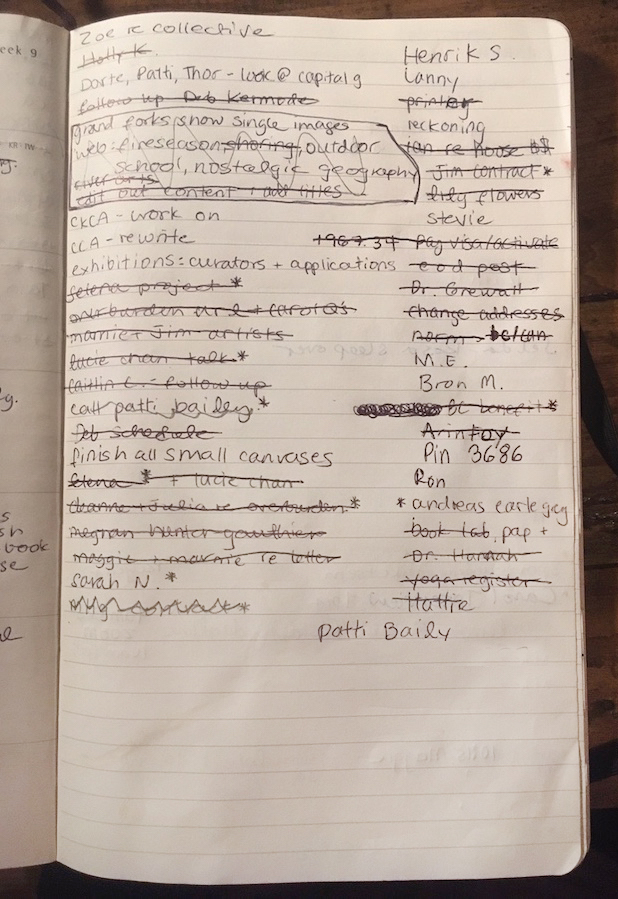 zoe re collective
Holly K.
Dorte, Patti, Thor - look @ capital g
follow up Deb Kermode
grand forks, show single images
web: fireseason, shoring, outdoor
school, nostalgic geography
edit out content + add titles
CKCA - work on
CCA - rewrite
exhibitions: curators + applications
Selena project *
overburden url + carol Q's
marnie + Jim - artists
lucie chan talk *
Caitlin C. - follow up
call patti bailey *
Deb schedule
finish all small canvases
Elena * + lucie chan
deanne + Julia re overburden *
megran hunter-gauthier
maggie + marnie re letter
Sarah N. *
Henrik S.
Lanny
printer
reckoning
Ian re house
Jim contract *
lily flowers
Stevie
1967.37 Pay visa/activate
e o d post
Dr. Grewall
change addresses
norm - bc/can
M.E.
Bron M.
BC benefit *
Arintoy
Pin 3686
Ron
* andreas earle gcg
book lab, pap +
Dr. Hannah
yoga register
Hattie
Patti Baily
eek 9
book
se